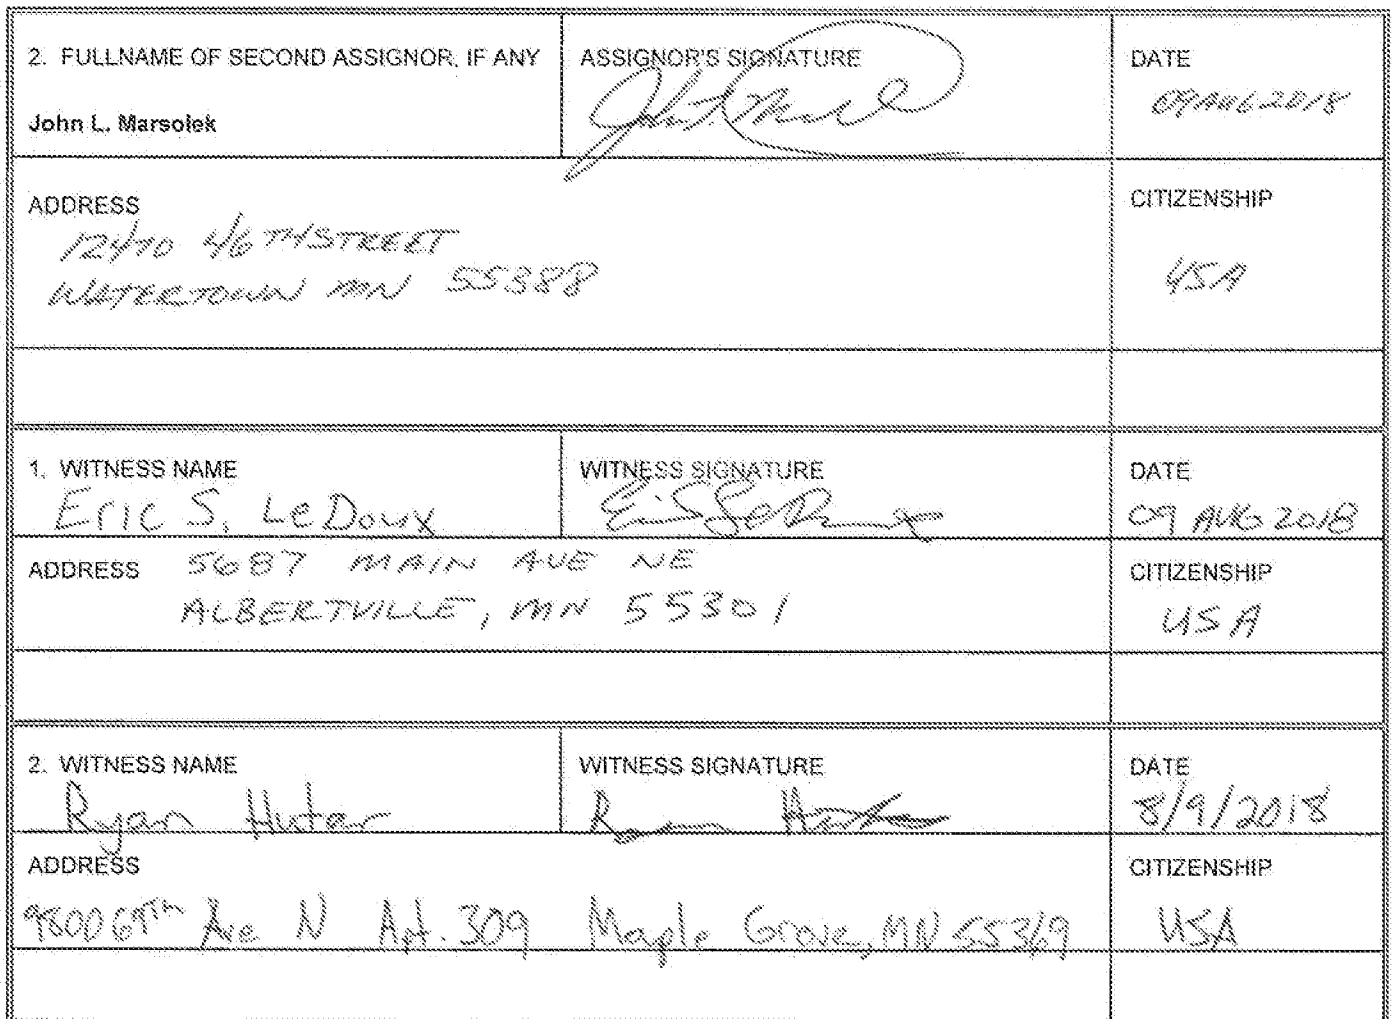 2. FULLNAME OF SECOND ASSIGNOR, IF ANY
John L. Marsolek
ASSIGNOR'S SIGNATURE
DATE
09AUG2018
ADDRESS
12470 46TH STREET
WATERTOWN MN 55388
CITIZENSHIP
USA
1. WITNESS NAME
Eric S. LeDoux
WITNESS SIGNATURE
DATE
09 AUG 2018
ADDRESS 5687 MAIN AVE NE
ALBERTVILLE, MN 55301
CITIZENSHIP
USA
2. WITNESS NAME
Ryan Hutar
WITNESS SIGNATURE
DATE
8/9/2018
ADDRESS
9800 69th Ave N Apt. 309 Maple Grove, MN 55369
CITIZENSHIP
USA